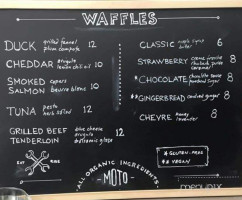 WAFFLES
DUCK grilled fennel
plum compote 12
CHEDDAR arugula
lemon chili oil 10
SMOKED capers
SALMON beurre blanc 10
TUNA pesto
herb salad 12
GRILLED BEEF blue cheese
TENDERLOIN arugula
balsamic glaze 12
CLASSIC maple syrup
butter 6
STRAWBERRY
caramel 8
*CHOCOLATE chocolate sauce
candied ginger 8
*GINGERBREAD candied ginger 8
CHEVRE honey
lavender 8
EAT
ALL ORGANIC INGREDIENTS
MOTO
*GLUTEN-FREE
& VEGAN
menupix